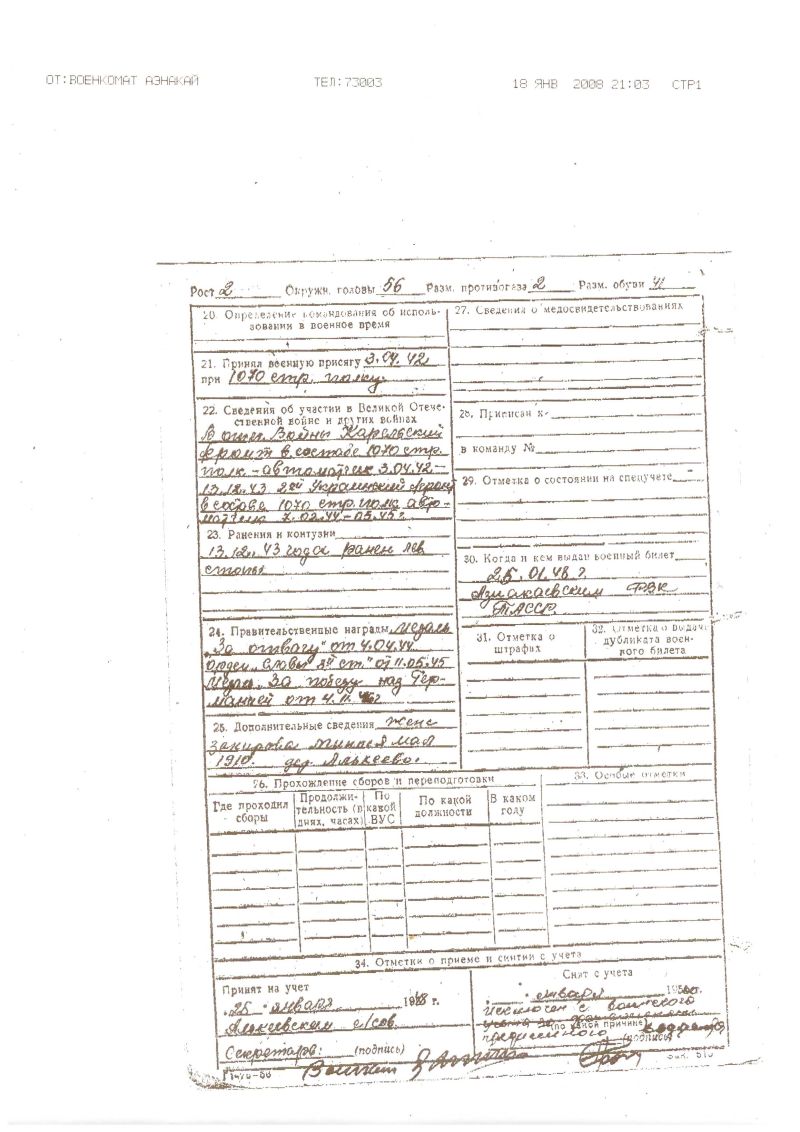 ОТ:ВОЕНКОМАТ АЗНАКАЙ ТЕЛ:73003 18 ЯНВ 2008 21:03 СТР1
Рост 2 Окружн. головы 56 Разм. противогаза 2 Разм. обуви 41
20. Определение командования об исполь-
зовании в военное время
21. Принял военную присягу 3.04.42
при 1070 стр. полку
22. Сведения об участии в Великой Отече-
ственной войне и других войнах
В отеч. Войны Карельский
фронт в составе 1070 стр.
полк. - автоматчик 3.04.42 -
13.12.43 2ой Украинский фронт
в составе 1070 стр. полк авто-
матчик 02.44 - 05.45 г
23. Ранения и контузии
13.12.43 года ранен лев
стопы
24. Правительственные награды Медаль
"За отвагу" от 4.04.44
Орден "Славы 3й ст." от 11.05.45
Медаль "За победу над Гер-
манией от 4.11.46г
25. Дополнительные сведения жена
Закирова
1910г дер. Алькеево.
27. Сведения о медосвидетельствованиях
28. Приписан к
в команду №
29. Отметка о состоянии на спецучете
30. Когда и кем выдан военный билет
25.01.48 г
Азнакаевским РВК
ТАССР.
31. Отметка о
штрафах
32. Отметка о выдаче
дубликата воен-
ного билета
26. Прохождение сборов и переподготовки
Где проходил
сборы
Продолжи-
тельность (в
днях, часах)
По
какой
ВУС
По какой
должности
В каком
году
33. Особые отметки
34. Отметки о приеме и снятии с учета
Принят на учет
"25" января 1948 г.
Алькеевским с/сов.
Секретарь: (подпись)
Снят с учета
января 195
Исключен с воинского
учета
(по какой причине)
предельного возраста
(подпись)